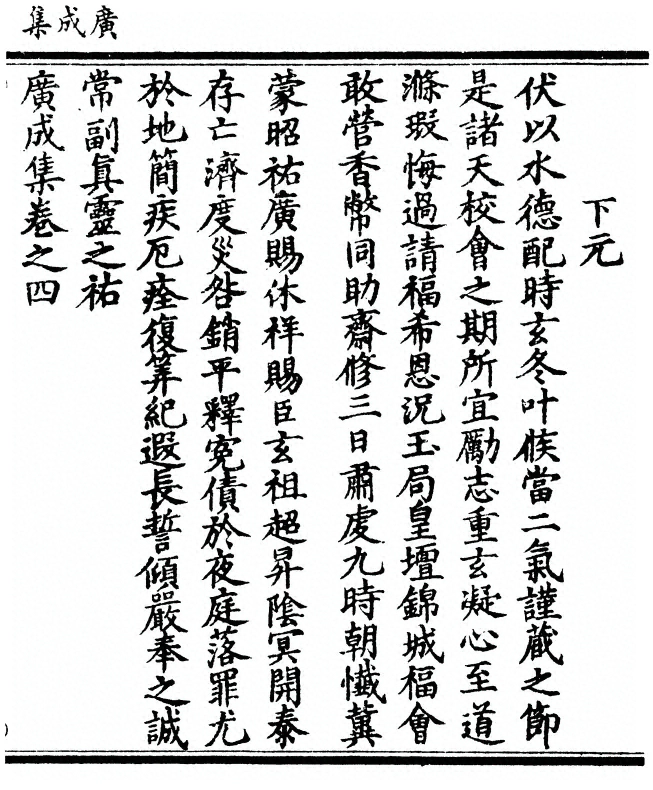 廣成集
下元
伏以水德配時玄冬叶候當二氣謹藏之節
是諸天校會之期所宜勵志重玄凝心至道
滌瑕悔過請福希恩況玉局皇壇錦城福會
敢營香幣同助齋修三日肅虔九時朝懺冀
蒙昭祐廣賜休祥賜臣玄祖超昇陰冥開泰
存亡濟度災咎銷平釋寃債於夜庭落罪尤
於地簡疾厄痊復筭紀遐長誓傾嚴奉之誠
常副眞靈之祐
廣成集卷之四